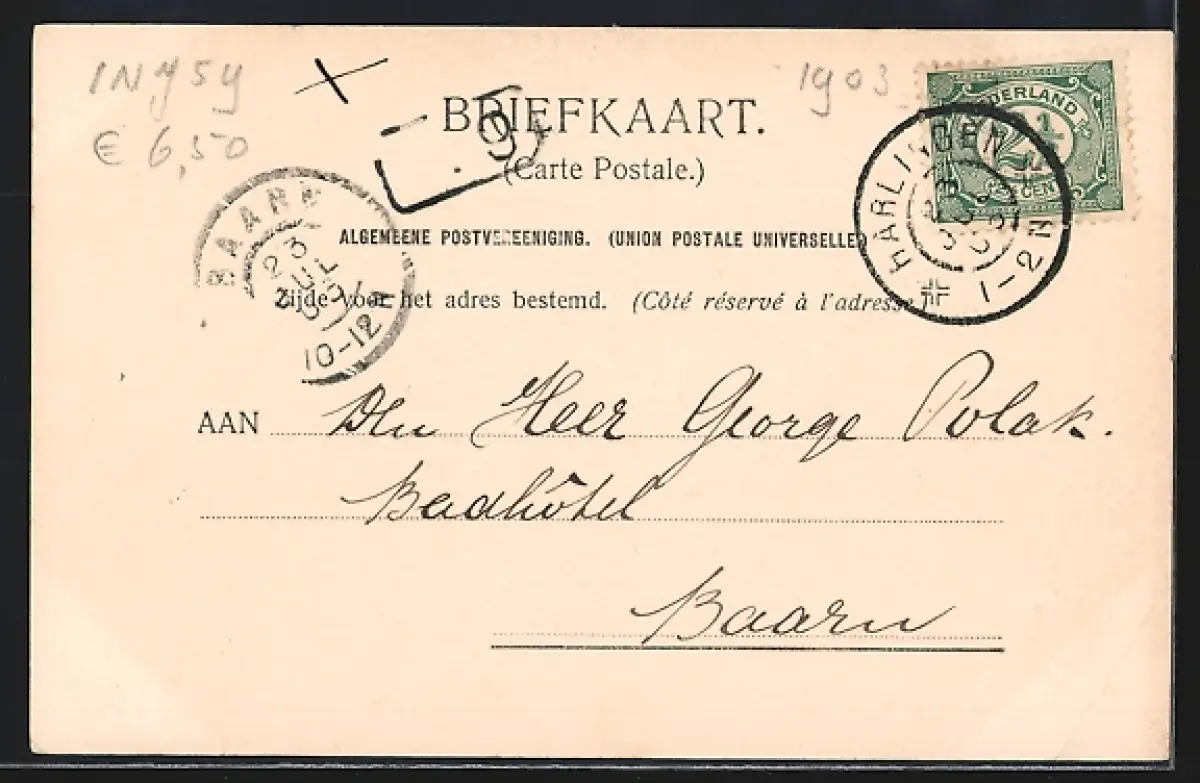 1903
€ 6,50
BRIEFKAART.
(Carte Postale.)
NEDERLAND
2 1/2
CENT
HARLINGEN
1-2N
BAARN
23
JUL
10-12
ALGEMEENE POSTVEREENIGING. (UNION POSTALE UNIVERSELLE)
Zijde voor het adres bestemd. (Côté réservé à l'adresse.)
AAN Den Heer George Polak.
Badhôtel
Baarn